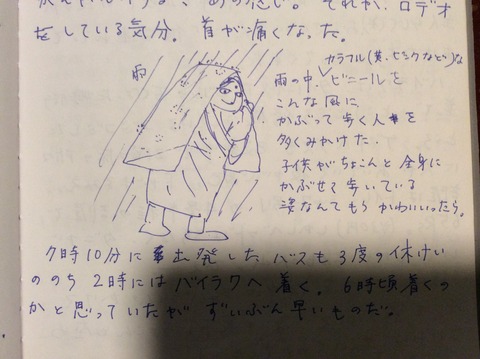 をしている気分。首が痛くなった。
雨
カラフル(黄、ピンクなど)な
雨の中、ビニールを
こんな風に
かぶって歩く人を
多くみかけた。
子供がちょこんと全身に
かぶせて歩いている
姿なんてもうかわいいったら。
7時10分に出発したバスも3度の休けい
ののち2時にはバイラクへ着く。6時頃着くの
かと思っていたがずいぶん早いものだ。